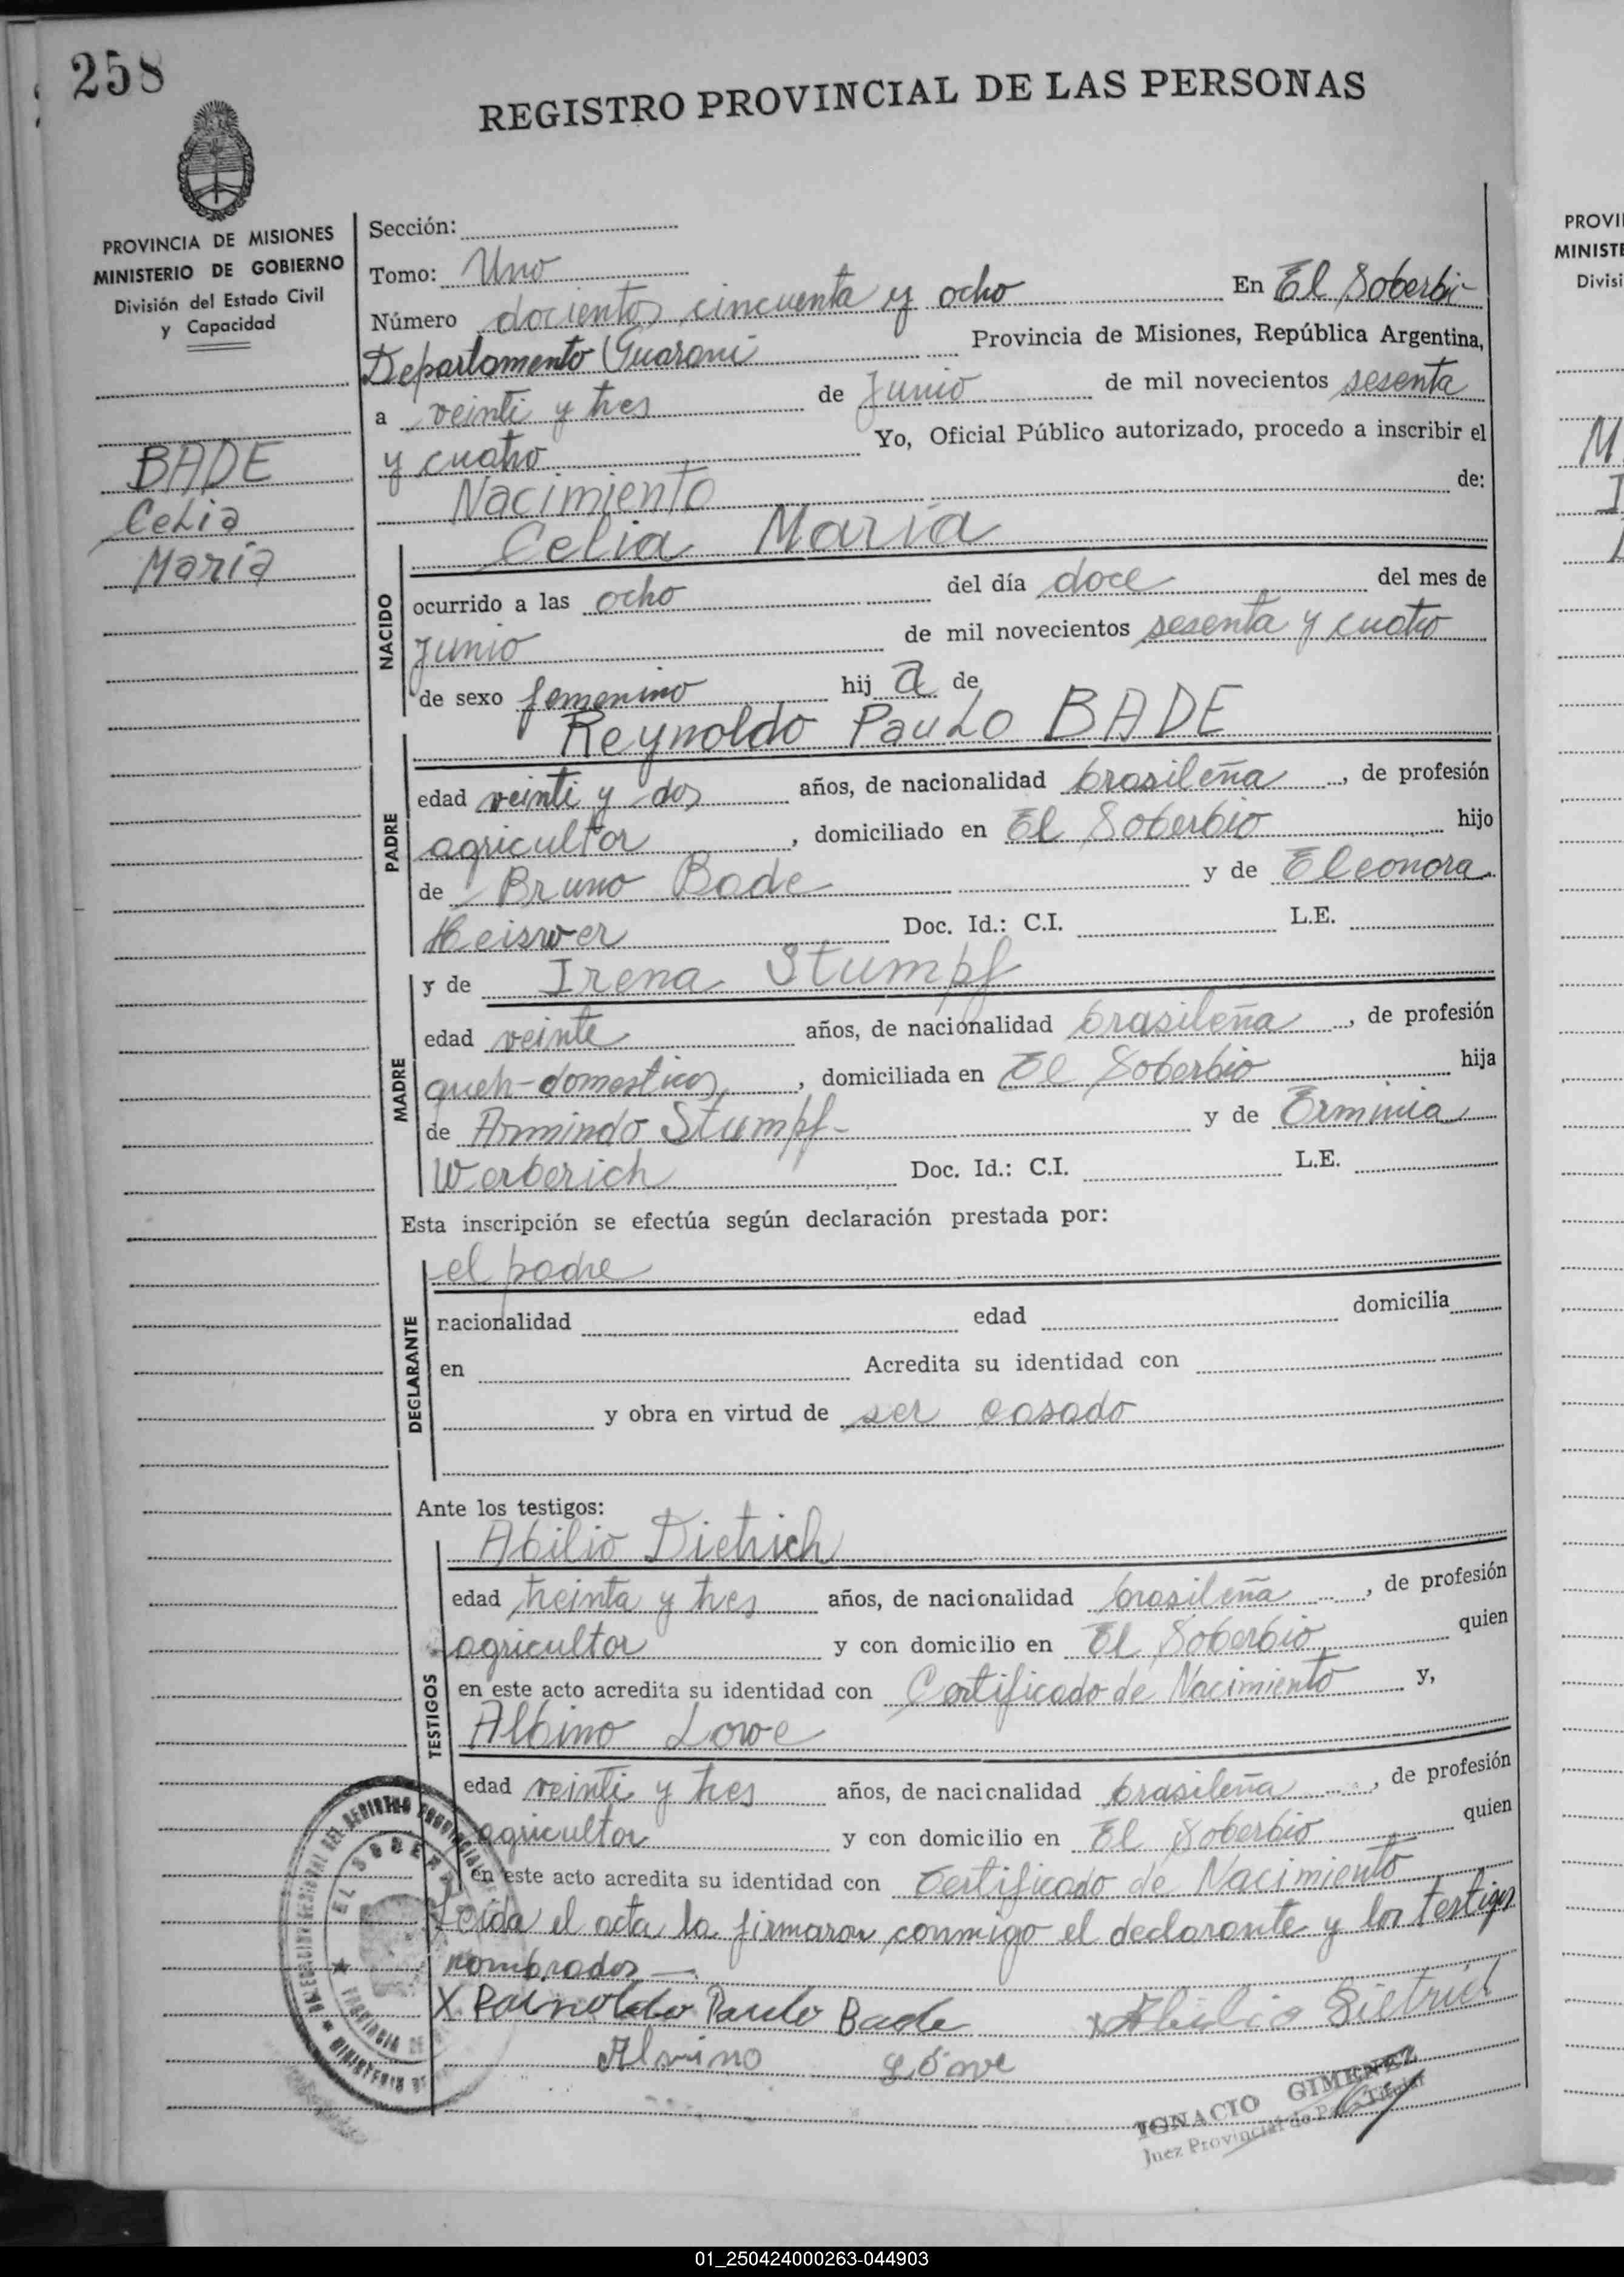 258
REGISTRO PROVINCIAL DE LAS PERSONAS
PROVINCIA DE MISIONES
MINISTERIO DE GOBIERNO
División del Estado Civil
y Capacidad
BADE
Celia
María
Sección:
Tomo: Uno
Número docientos cincuenta y ocho En El Soberbio
Departamento Guaraní Provincia de Misiones, República Argentina,
a veinti y tres de Junio de mil novecientos sesenta
y cuatro Yo, Oficial Público autorizado, procedo a inscribir el
Nacimiento de:
NACIDO
Celia María
ocurrido a las ocho del día doce del mes de
Junio de mil novecientos sesenta y cuatro
de sexo femenino hij a de
PADRE
Reynoldo Paulo BADE
edad veinti y dos años, de nacionalidad brasileña, de profesión
agricultor, domiciliado en El Soberbio hijo
de Bruno Bade y de Eleonora
Doc. Id.: C.I. L.E.
MADRE
y de Irena Stumpf
edad veinte años, de nacionalidad brasileña, de profesión
queh-domesticos, domiciliada en El Soberbio hija
de Armindo Stumpf- y de Erminia
Werberich Doc. Id.: C.I. L.E.
Esta inscripción se efectúa según declaración prestada por:
DECLARANTE
el padre
nacionalidad edad domicilia
en Acredita su identidad con
y obra en virtud de ser casado
Ante los testigos:
TESTIGOS
Abilio Dietrich
edad treinta y tres años, de nacionalidad brasileña, de profesión
agricultor y con domicilio en El Soberbio quien
en este acto acredita su identidad con Certificado de Nacimiento y,
Albino Lowe
edad veinti y tres años, de nacionalidad brasileña, de profesión
agricultor y con domicilio en El Soberbio quien
en este acto acredita su identidad con Certificado de Nacimiento
Leída el acta la firmaron conmigo el declarante y los testigos
nombrados
X Rainoldo Paulo Bade X Abilio Dietrich
Alvino Löwe
IGNACIO GIMENEZ
Juez Provincial de Paz Titular
EL SOBERBIO
PROVI
MINISTE
Divisi
M
I
01_250424000263-044903